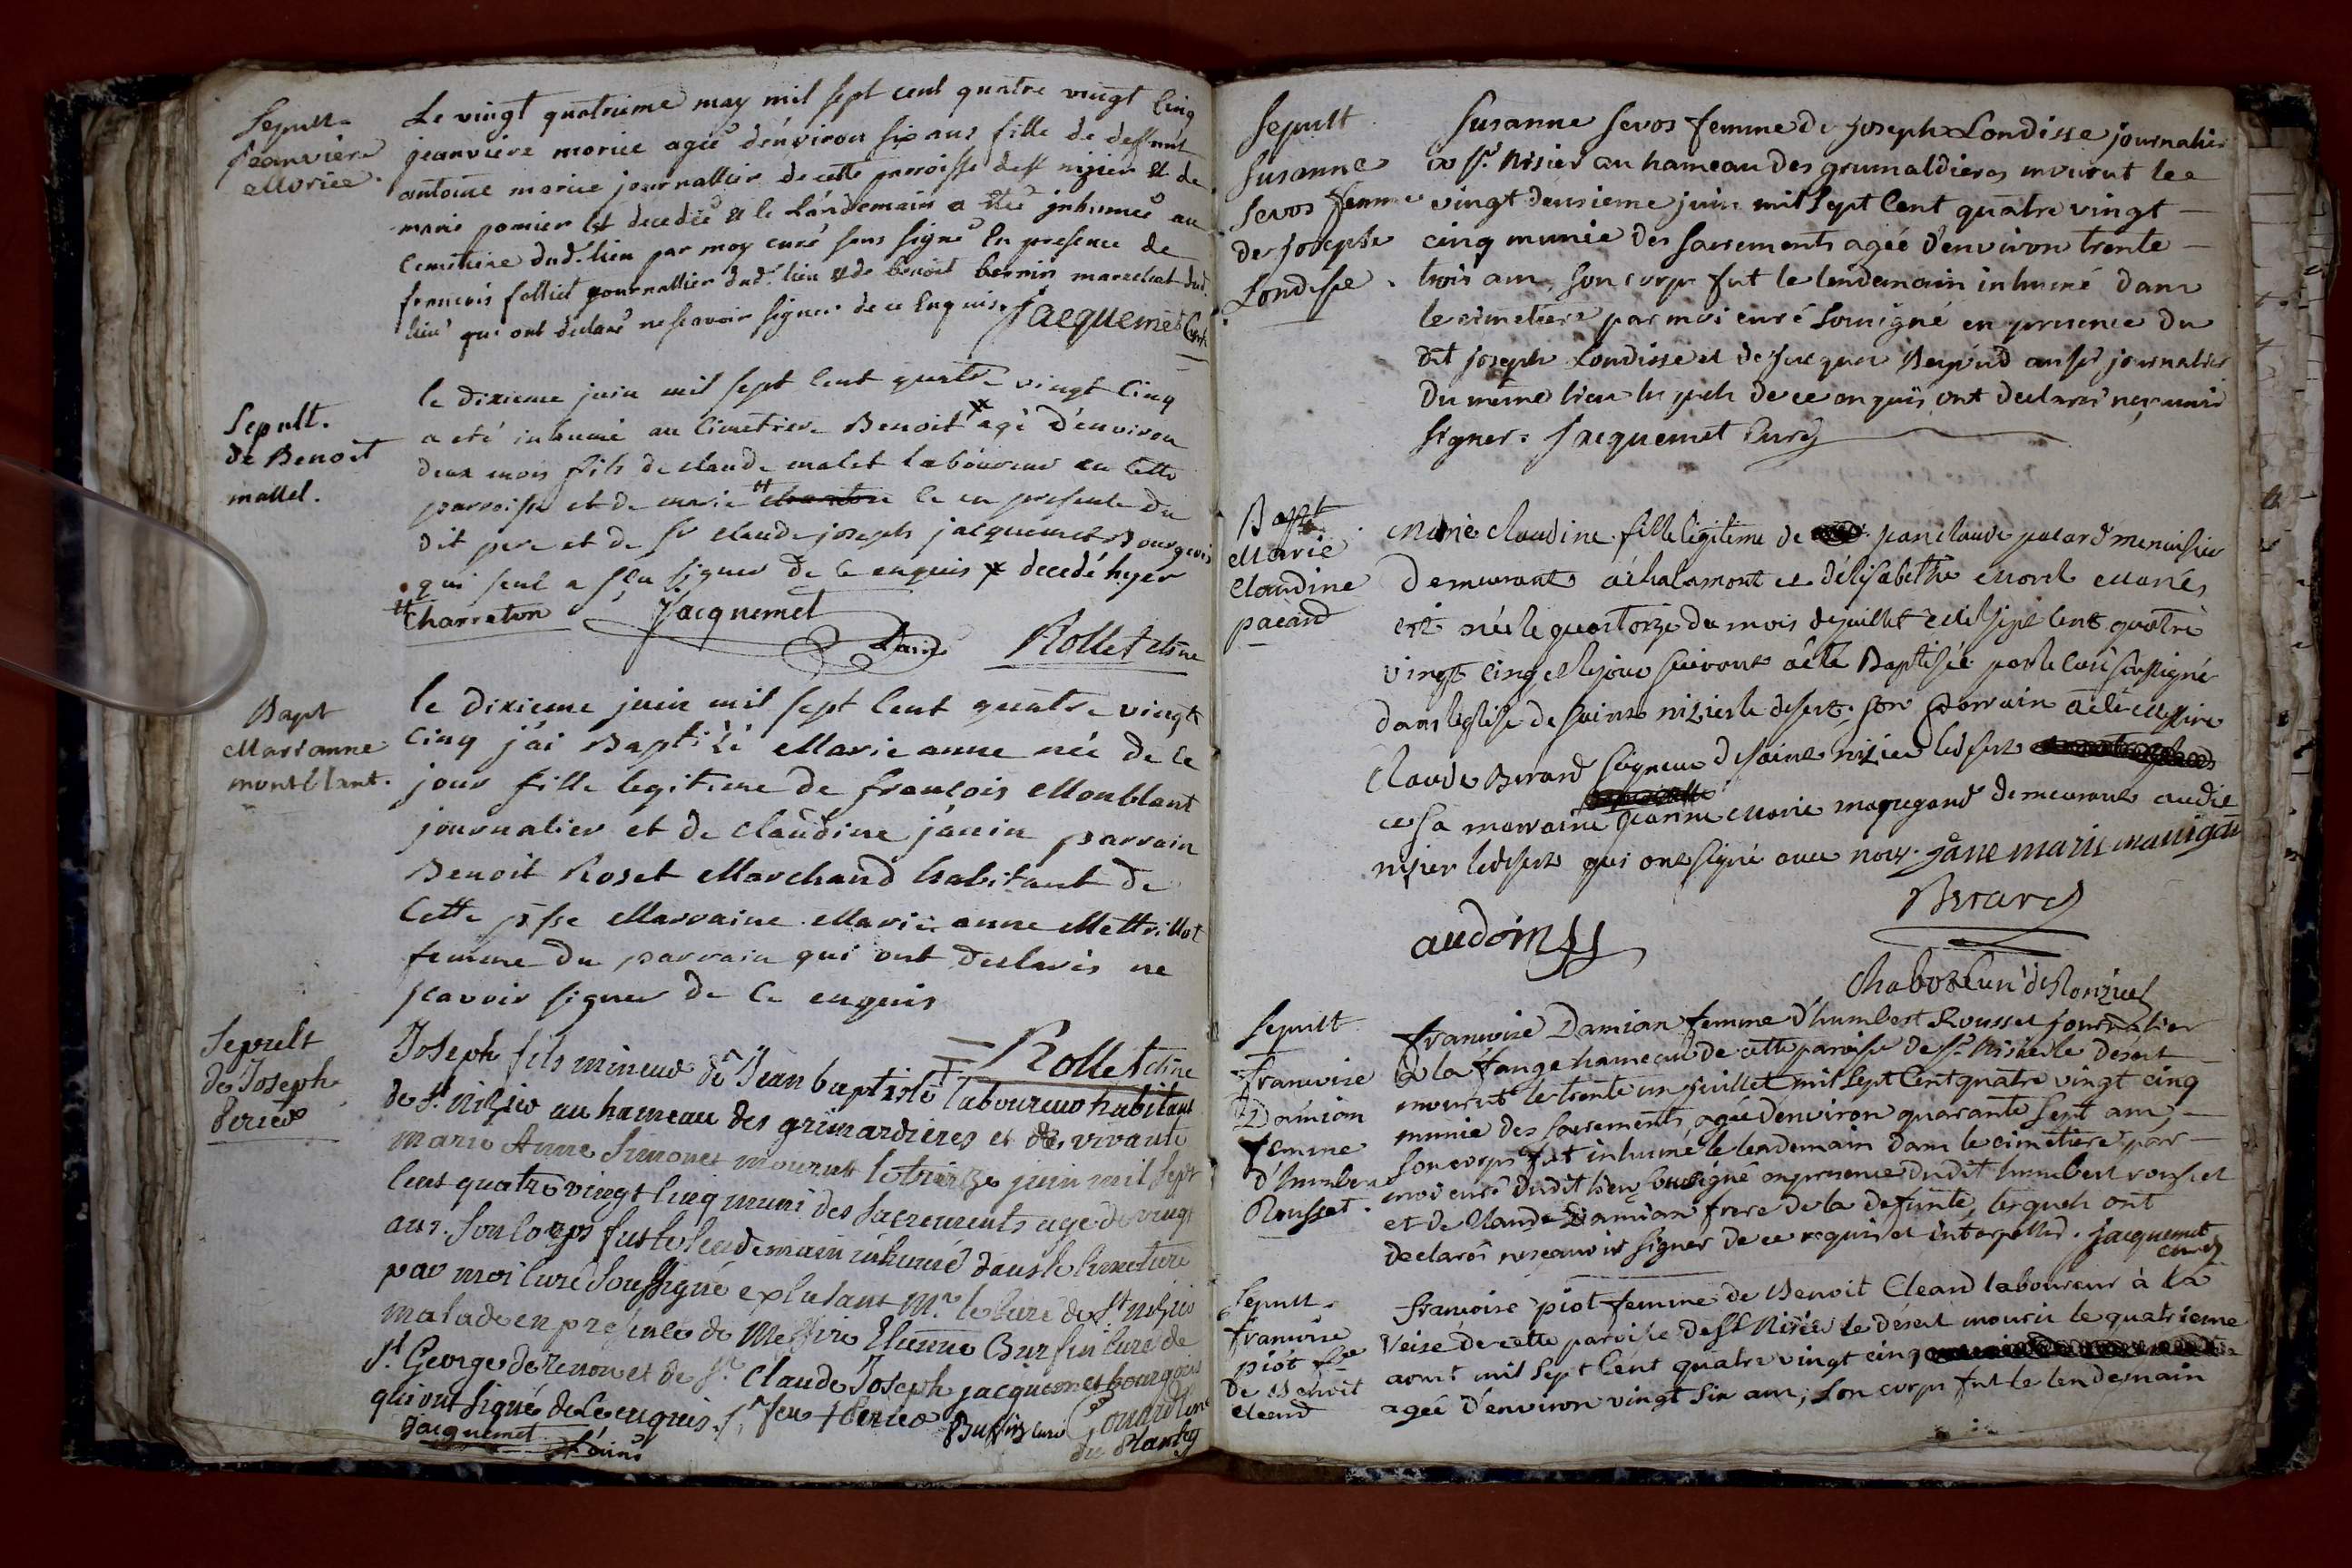 Sepult.
jeanviere
Morice.
Le vingt quatrieme may mil sept cent quatre vingt cinq
jeanviere morice agée d'environ six ans fille de deffunt
antoine morice journallier de cette parroisse de st nizier et de
marie pomier est decedée et le landemain a été inhumée au
cemetiere dud. lieu par moy curé sous signé en presence de
françois folliet journallier dud. lieu et de benoit bernin marechal dud.
lieu qui ont declaré ne scavoir signer de ce enquis. Jacquemet Curé
Sepult.
de Benoit
mallet.
le dixieme juin mil sept cent quatre vingt cinq
a eté inhumé au cimetiere Benoit x agé d'environ
deux mois fils de claude malet laboureur en cette
parroisse et de marie # ce en presence du
dit pere et de sr claude joseph jacquemet Bourgeois
qui seul a sçu signer de ce enquis x decedé hyer
# Charreton Jacquemet
Rollet
Bapt
Marianne
montblant.
le dixieme juin mil sept cent quatre vingt
cinq j'ai Baptisé Marie anne née de ce
jour fille legitime de françois Monblant
journalier et de claudine janin parrain
Benoit Roset Marchand habitant de
cette psse Marraine Marie anne Mettrillot
femme du parrain qui ont declarés ne
scavoir signer de ce enquis
Rollet
Sepult
de Joseph
Perier
Joseph fils mineur de Jean baptiste laboureur habitant
de St nizier au hameau des grimardieres et de vivante
Marie Anne Simonet mourut le treize juin mil sept
cent quatre vingt cinq muni des sacrements agé de vingt
ans. Son corps fut le lendemain inhumé dans le cimetiere
par moi curé soussigné Mr le curé de St nizier
malade en presence de Messire Etienne Buffin curé de
St George de Renon et de Sr Claude Joseph jacquemet bourgeois
qui ont signé de ce enquis.
Jacquemet Buffin curé
Sepult
Susanne
Servos femme
de joseph
Londisse.
Susanne Servos femme de joseph Londisse journalier
a St Nisier au hameau des grumaldieres mourut le
vingt deusieme juin mil sept Cent quatre vingt
cinq munie des sacrements agée d'environ trente
trois ans, son corps fut le lendemain inhumé dans
le cimetiere par moi curé soussigné en presence du
dit joseph Londisse et de jacques journalier
du même lieu lesquels de ce enquis ont declarés ne scavoir
signer. Jacquemet Curé
Bapt
Marie
Claudine
pacard
Marie claudine fille legitime de jean claude pacard menuisier
demeurant a chalamont et d'elisabethe Morel Mariés
est née le quatorze du mois de juillet Mil sept cent quatre
vingt cinq et le jour suivant a été Baptisée par le curé soussigné
dans l'eglise de saint nizier le desert. son parrain a été Messire
Claude Berard seigneur de saint nizier le desert
et sa marraine jeanne Marie mangand demeurant audit
nizier le desert qui ont signé avec nous. jane marie
Berard
audoin
Chaboz Curé de Ronzuel
Sepult
francoise
Damian
femme
d'humbert
Rousset.
francoise Damian femme d'humbert Rousset journalier
à la fange hameau de cette paroisse de St Nisier le désert
mourut le trente un juillet mil sept Cent quatre vingt cinq
munie des sacrements, agée d'environ quarante sept ans,
son corps fut inhumé le lendemain dans le cimetiere par
moi curé dudit lieu soussigné en presence dudit humbert rousset
et de Claude Damian frere de la defunte, lesquels ont
declarés ne scavoir signer de ce requis et interpellés. Jacquemet
curé
Sepult.
francoise
piot fe
de Benoit
Cleand
francoise piot femme de Benoit Cleand laboureur à la
Veise de cette paroisse de St Nisier le désert mourut le quatrieme
aout mil sept Cent quatre vingt cinq
agée d'environ vingt six ans, son corps fut le lendemain